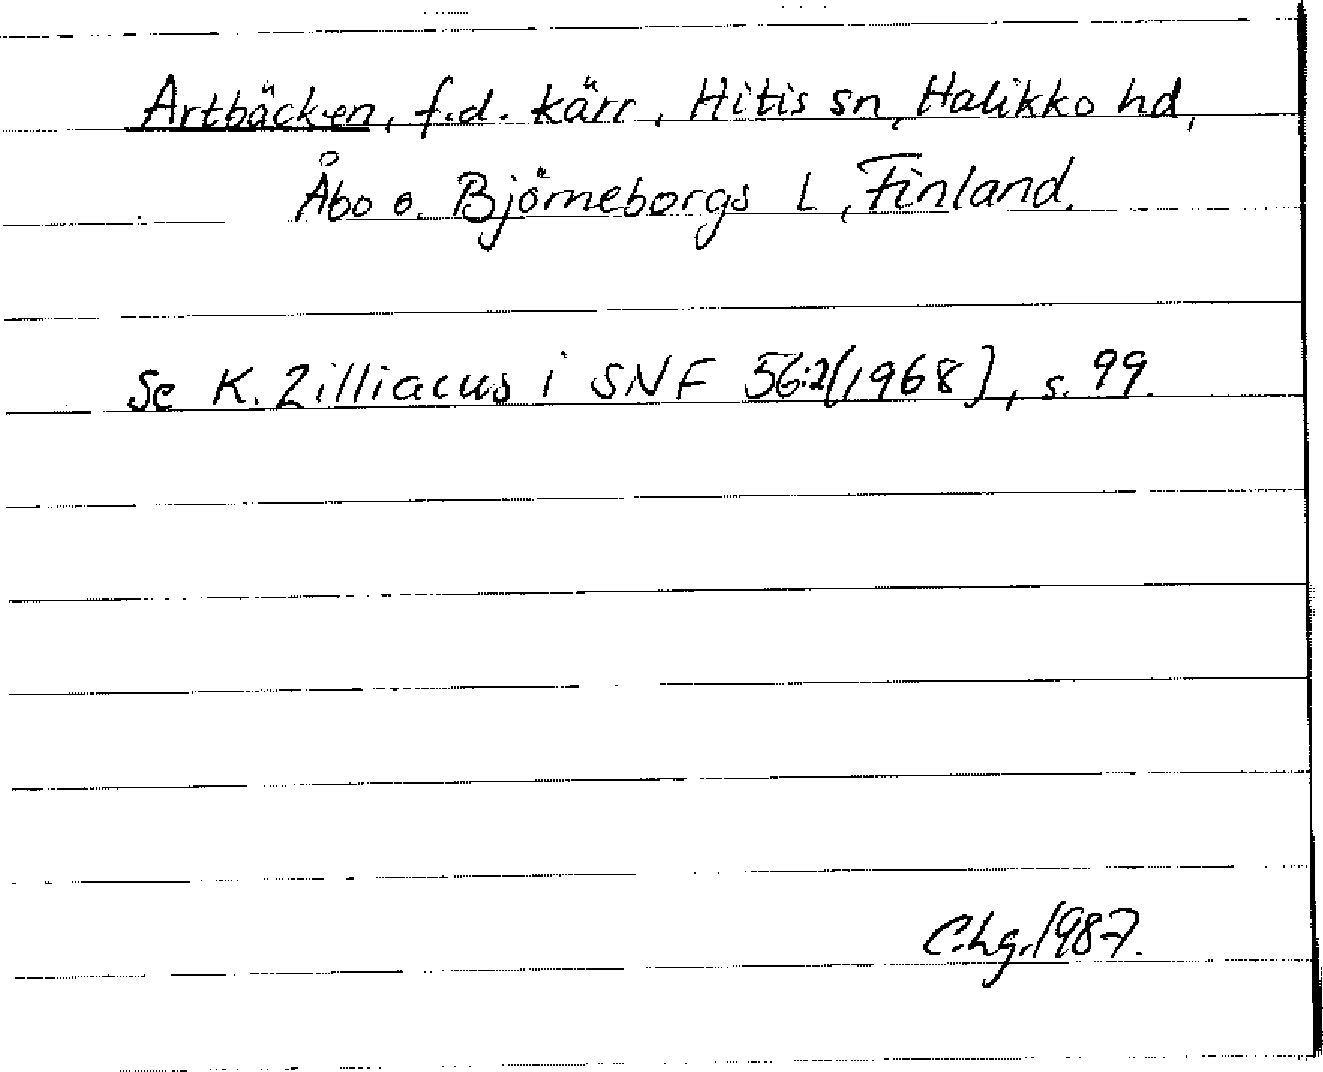 Artbäcken, f.d. kärr, Hitis sn, Halikko hd,
Åbo o. Björneborgs L, Finland.
Se K. Zilliacus i SNF 56:2(1968), s. 99.
C.Lg.1987.